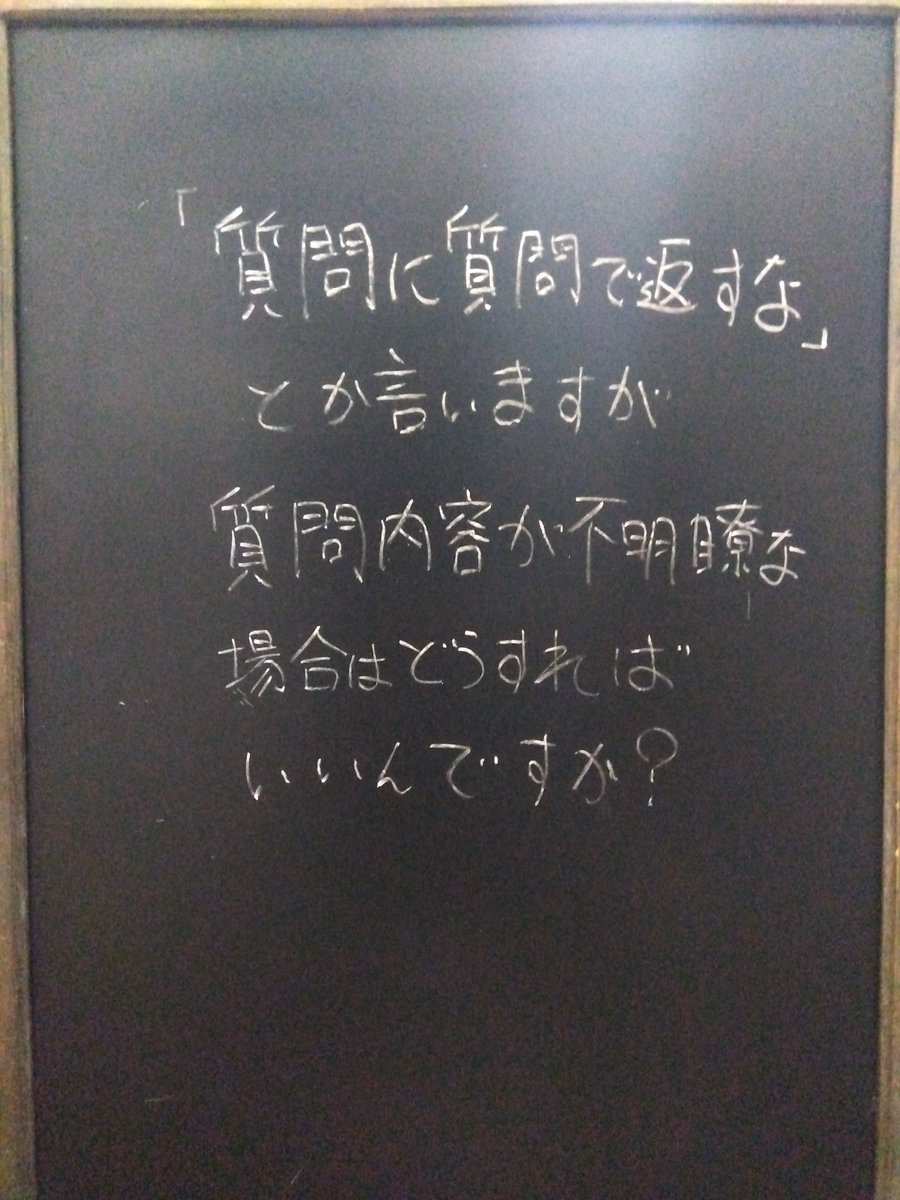 「質問に質問で返すな」
とか言いますが
質問内容が不明瞭な
場合はどうすれば
いいんですか?